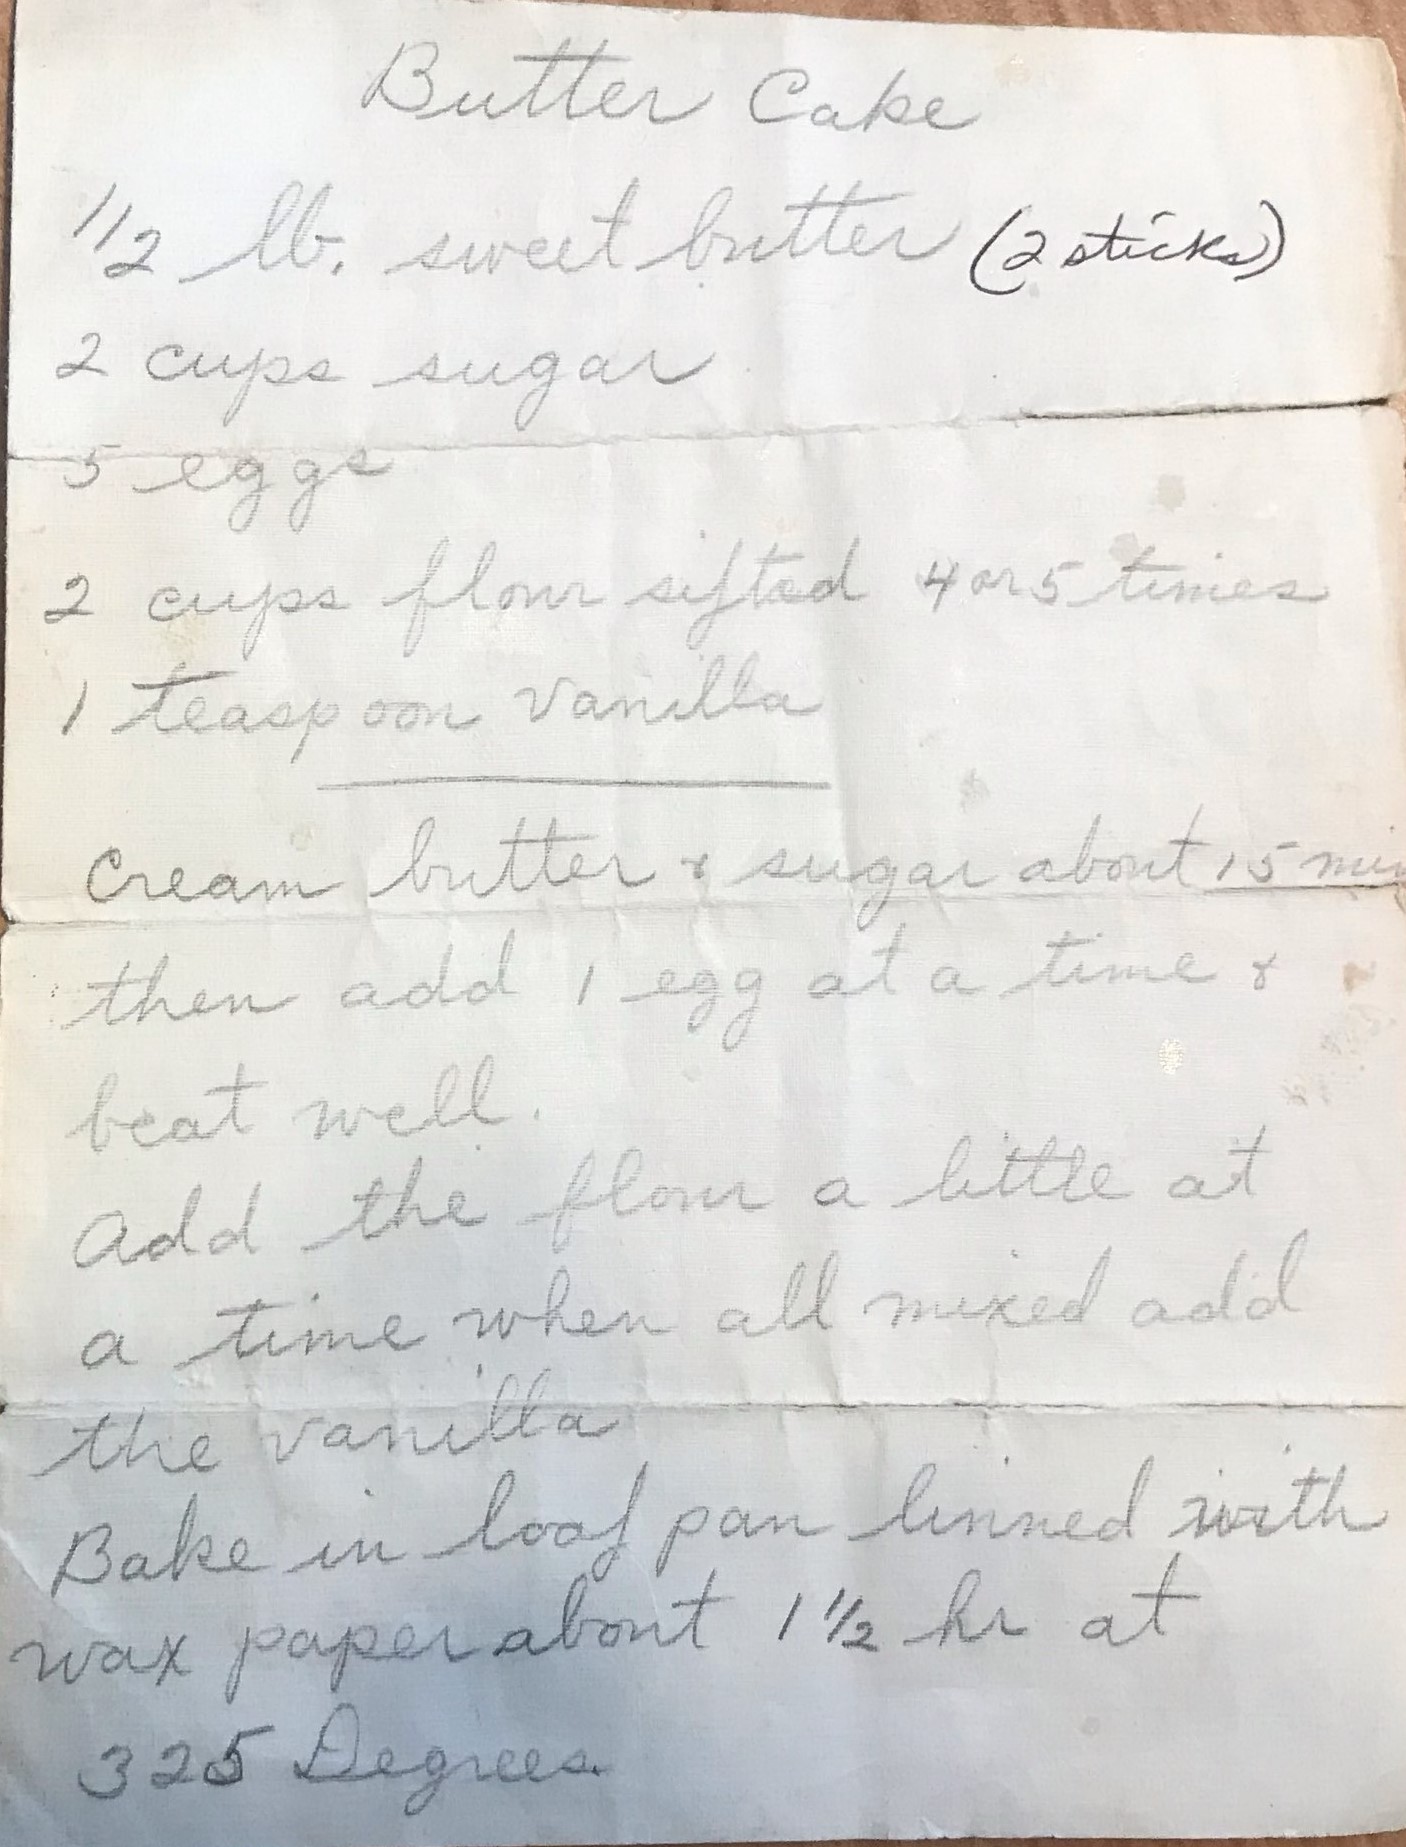 Butter Cake
1/2 lb. sweet butter (2 sticks)
2 cups sugar
5 eggs
2 cups flour sifted 4 or 5 times
1 teaspoon vanilla
Cream butter & sugar about 15 min
then add 1 egg at a time &
beat well.
Add the flour a little at
a time when all mixed add
the vanilla
Bake in loaf pan linned with
wax paper about 1 1/2 hr at
325 Degrees.